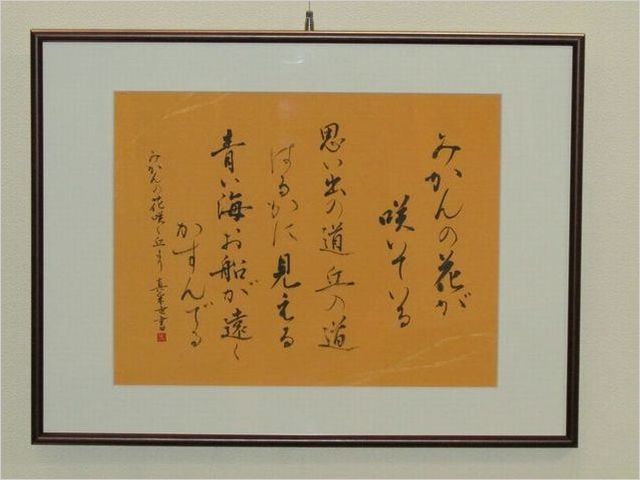 みかんの花が
咲いている
思い出の道丘の道
はるかに見える
青い海お船が遠く
かすんでる
みかんの花咲く丘より 真 書